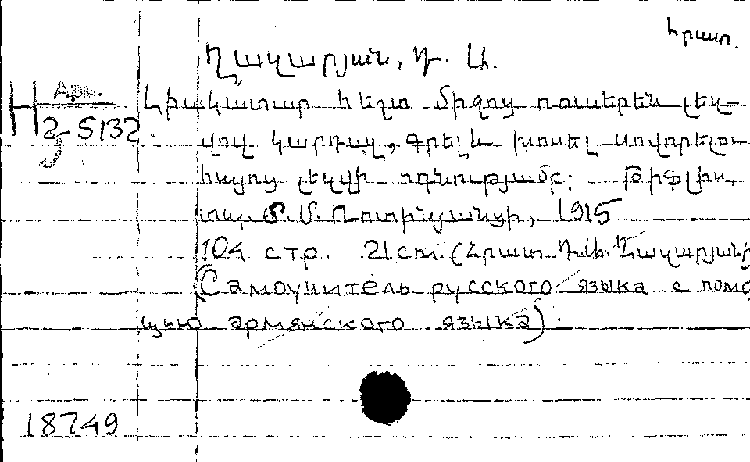 Հրատ.
Ղազարյան, Դ. Ա.
Арм.
H2 5132
Լիակատար հեշտ միջոց ռուսերեն լեզ-
վով կարդալ, գրել և խոսել սովորելու
հայոց լեզվի օգնությամբ: Թիֆլիս,
տպ. 1915
104 стр. 21 см. (Հրատ. Դ. Ա. Ղազարյանի)
(Самоучитель русского языка с помо
щью армянского языка)
18749